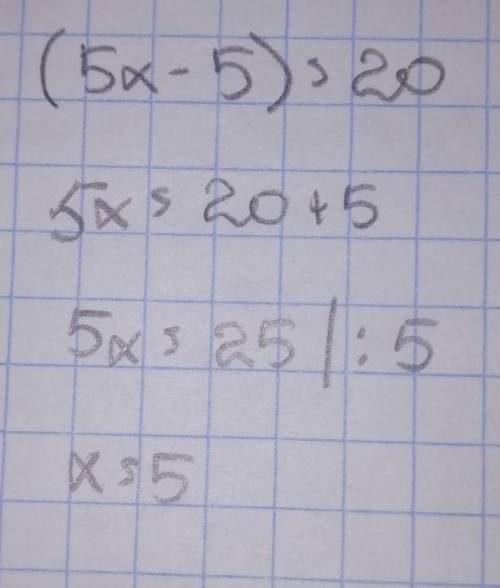 (5x - 5) = 20
5x = 20 + 5
5x = 25 | : 5
x = 5